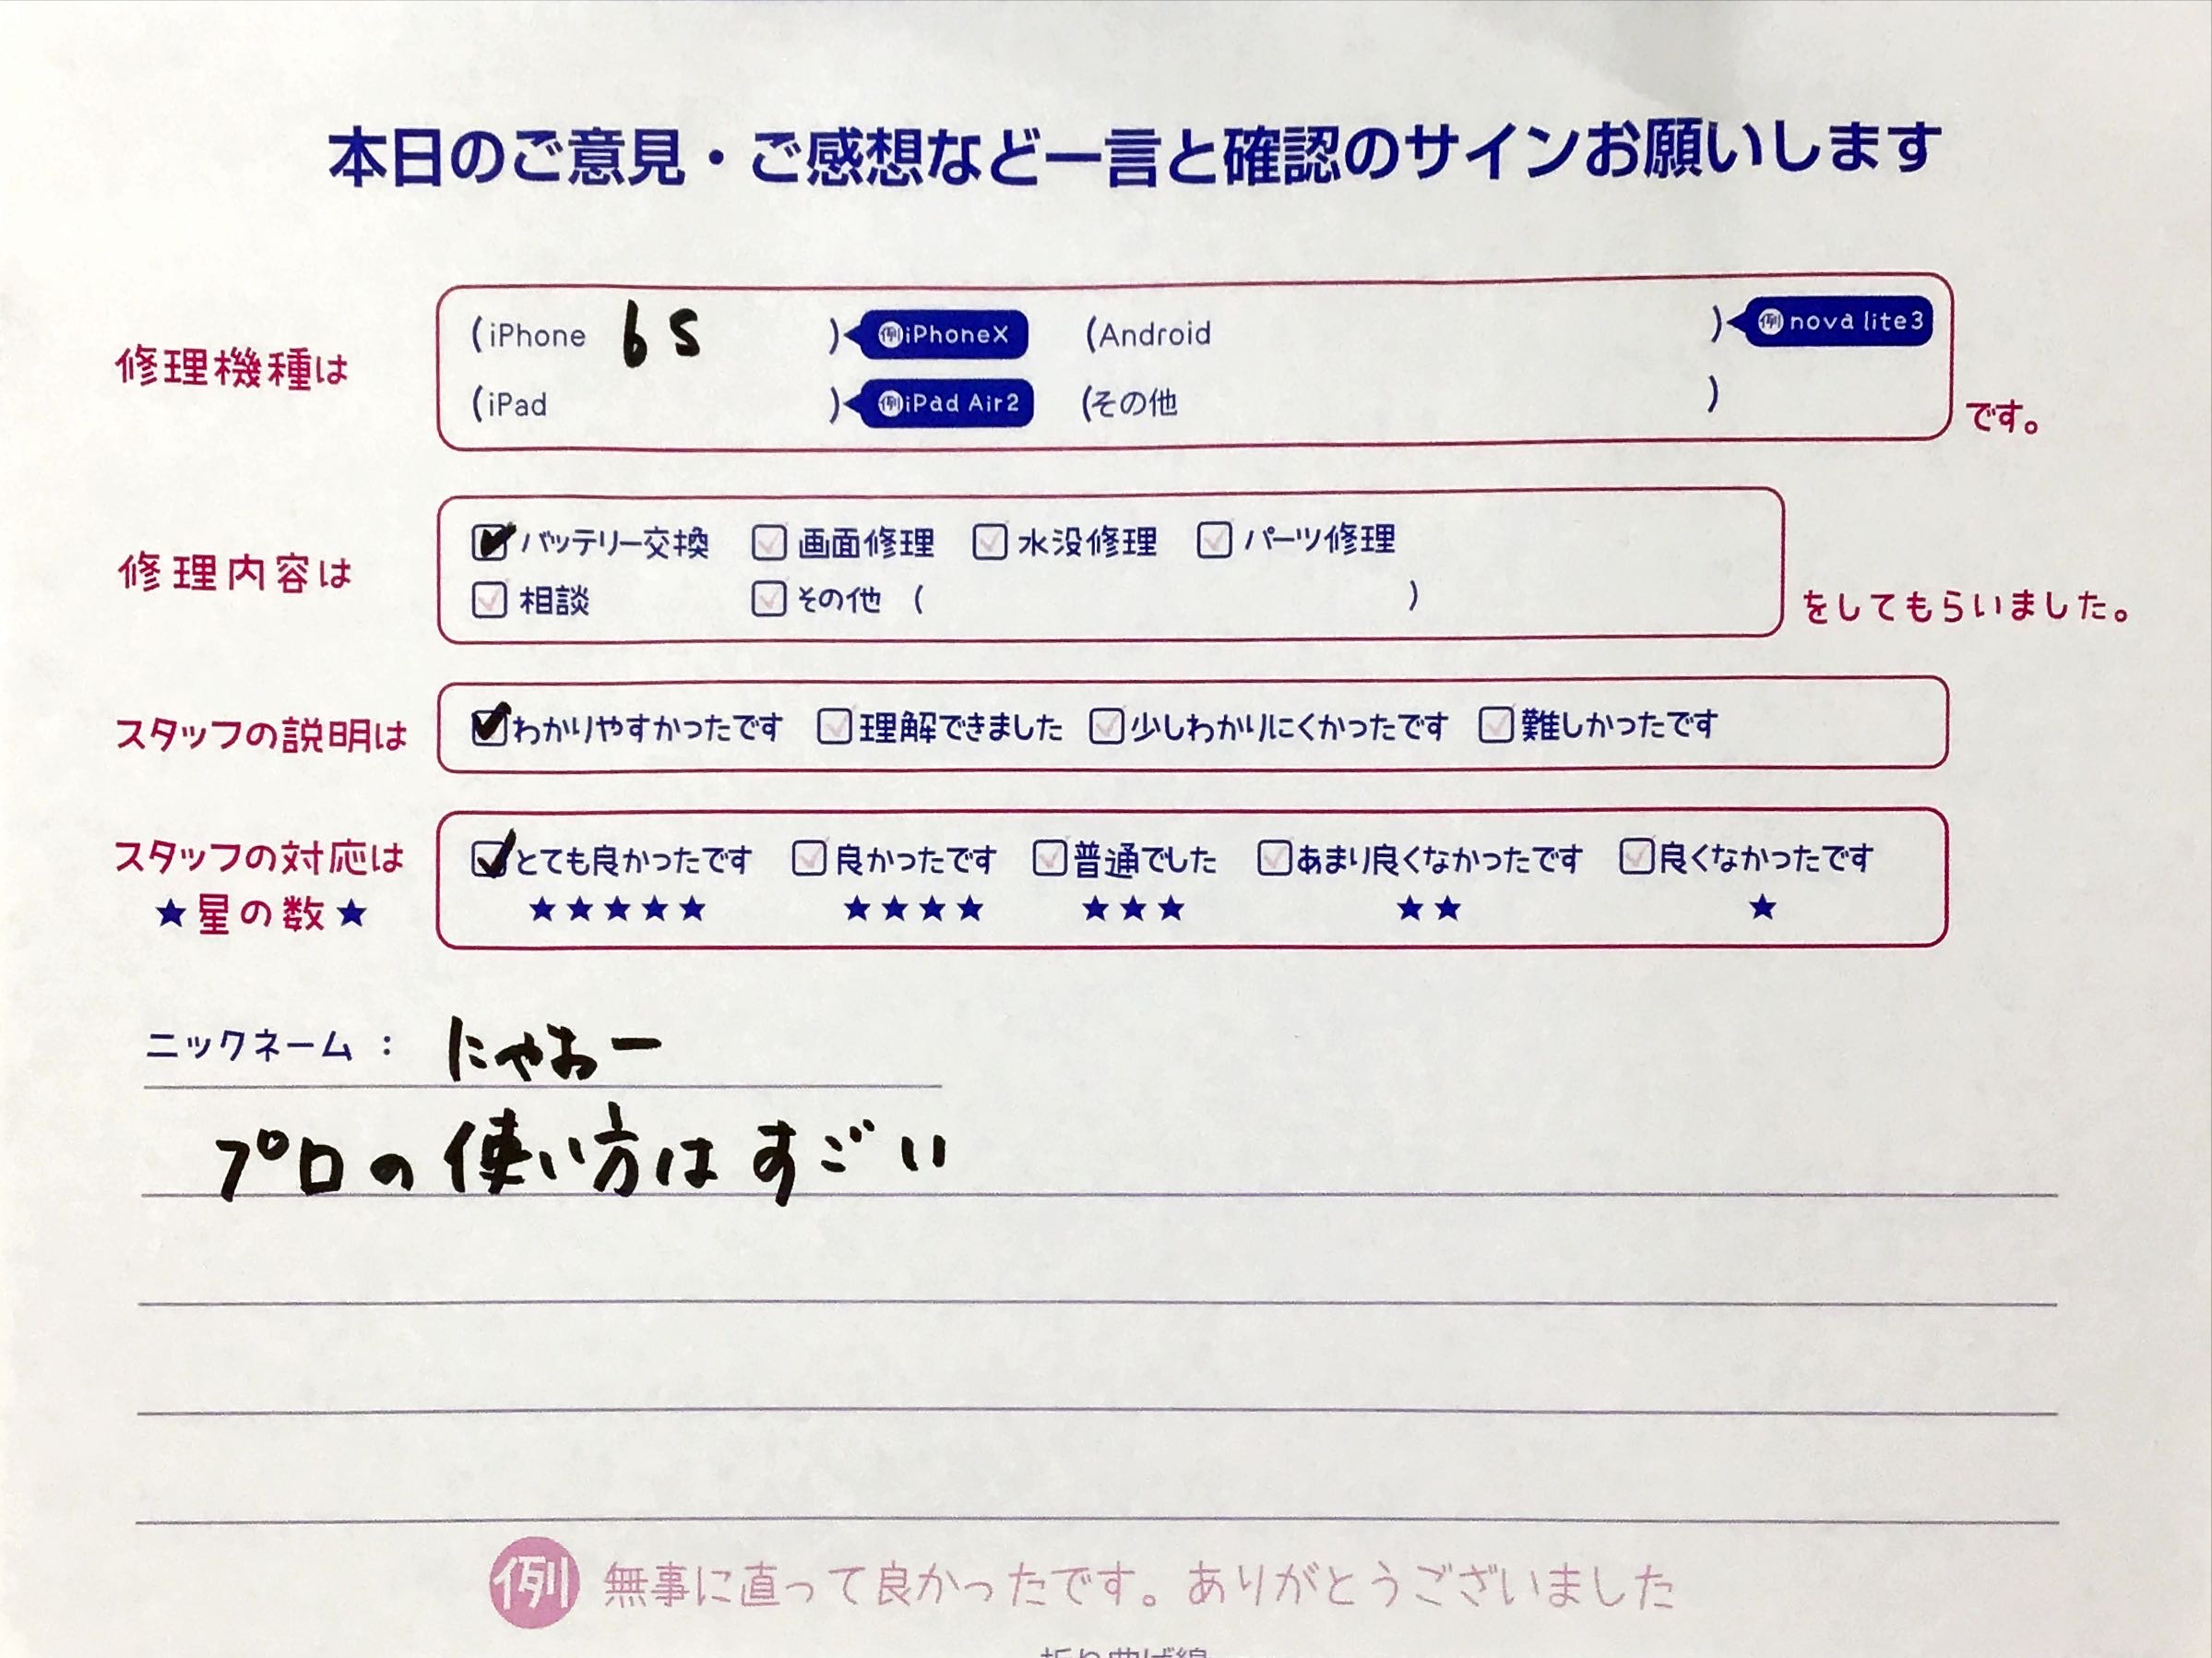 本日のご意見・ご感想など一言と確認のサインお願いします
修理機種は
(iPhone 6s ) 例iPhoneX (Android ) 例nova lite3
(iPad ) 例iPad Air2 (その他 )
です。
修理内容は
バッテリー交換 画面修理 水没修理 パーツ修理
相談 その他 ( )
をしてもらいました。
スタッフの説明は
わかりやすかったです 理解できました 少しわかりにくかったです 難しかったです
スタッフの対応は
★星の数★
とても良かったです 良かったです 普通でした あまり良くなかったです 良くなかったです
★★★★★ ★★★★ ★★★ ★★ ★
ニックネーム： にゃおー
プロの使い方はすごい
例 無事に直って良かったです。ありがとうございました
折り曲げ線